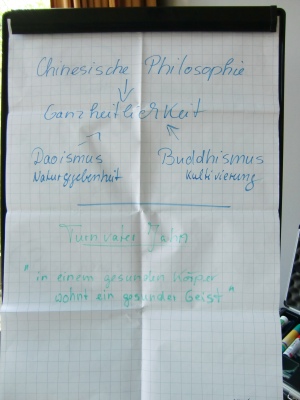 Chinesische Philosophie
Ganzheitlichkeit
Daoismus Buddhismus
Naturgegebenheit Kultivierung
Turnvater Jahn
"in einem gesunden Körper
wohnt ein gesunder Geist"